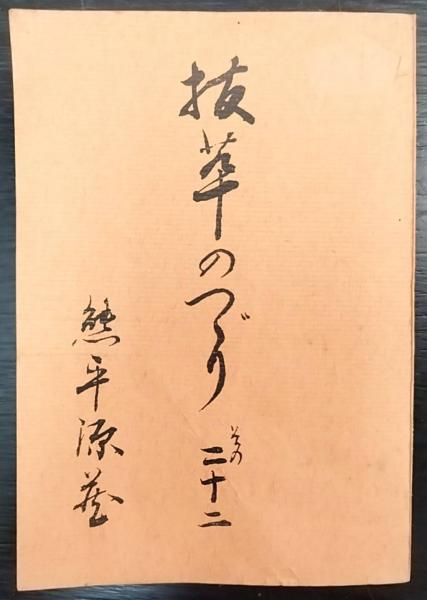 抜萃のつゞり その二十二
熊平源蔵